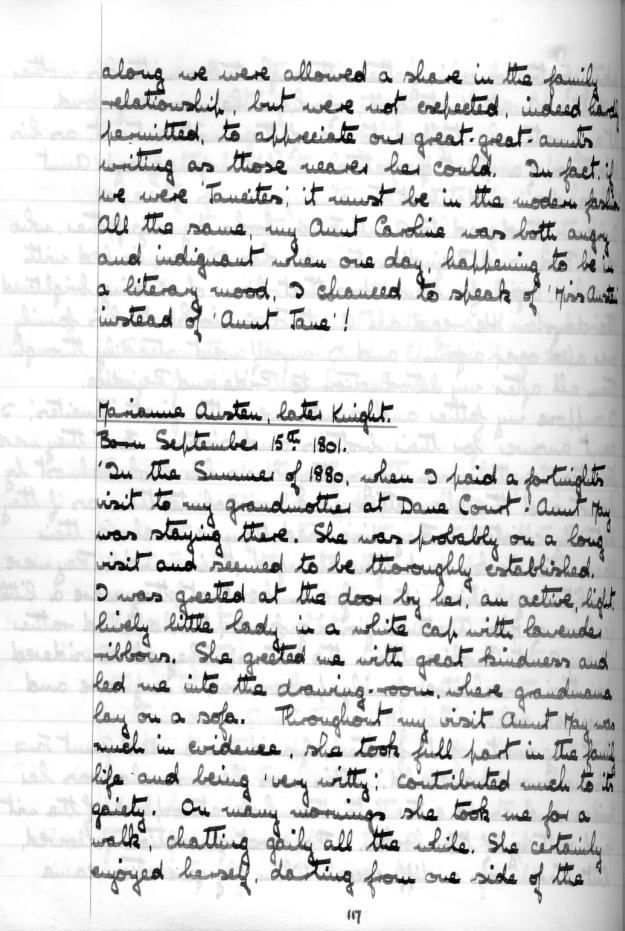 along we were allowed a share in the family
relationship, but were not expected, indeed hardly
permitted, to appreciate our great-great-aunts
writing as those nearer her could. In fact, if
we were 'Janeites', it must be in the modern fashion.
All the same, my Aunt Caroline was both angry
and indignant when one day, happening to be in
a literary mood, I chanced to speak of 'Miss Austen'
instead of 'Aunt Jane'!
Marianne Austen, later Knight.
Born September 15th 1801.
'In the Summer of 1880, when I paid a fortnights
visit to my grandmother at Dane Court. Aunt May
was staying there. She was probably on a long
visit and seemed to be thoroughly established.
I was greeted at the door by her, an active, light,
lively little lady in a white cap with lavender
ribbons. She greeted me with great kindness and
led me into the drawing-room, where grandmama
lay on a sofa. Throughout my visit Aunt May was
much in evidence, she took full part in the family
life and being 'very witty', contributed much to its
gaiety. On many mornings she took me for a
walk, chatting gaily all the while. She certainly
enjoyed herself, darting from one side of the
117